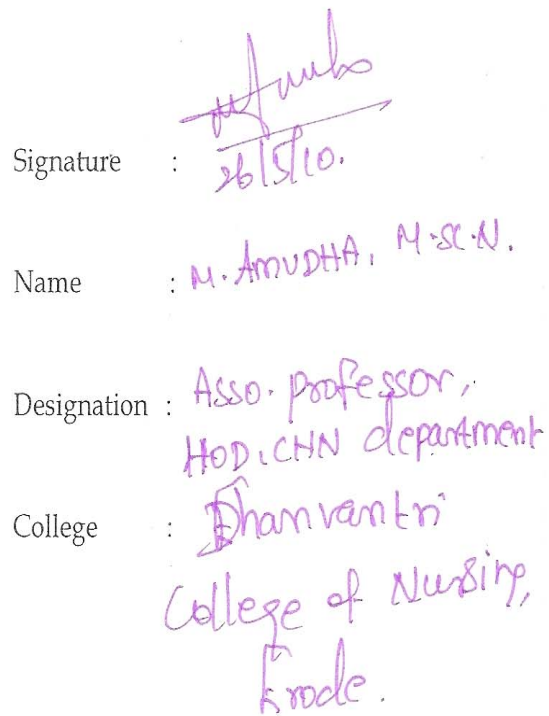 Signature :
26/5/10.
Name : M. AMUDHA, M.SC.N.
Designation : Asso. professor,
HOD, CHN department
College : Dhanvantri
College of Nursing,
Erode.